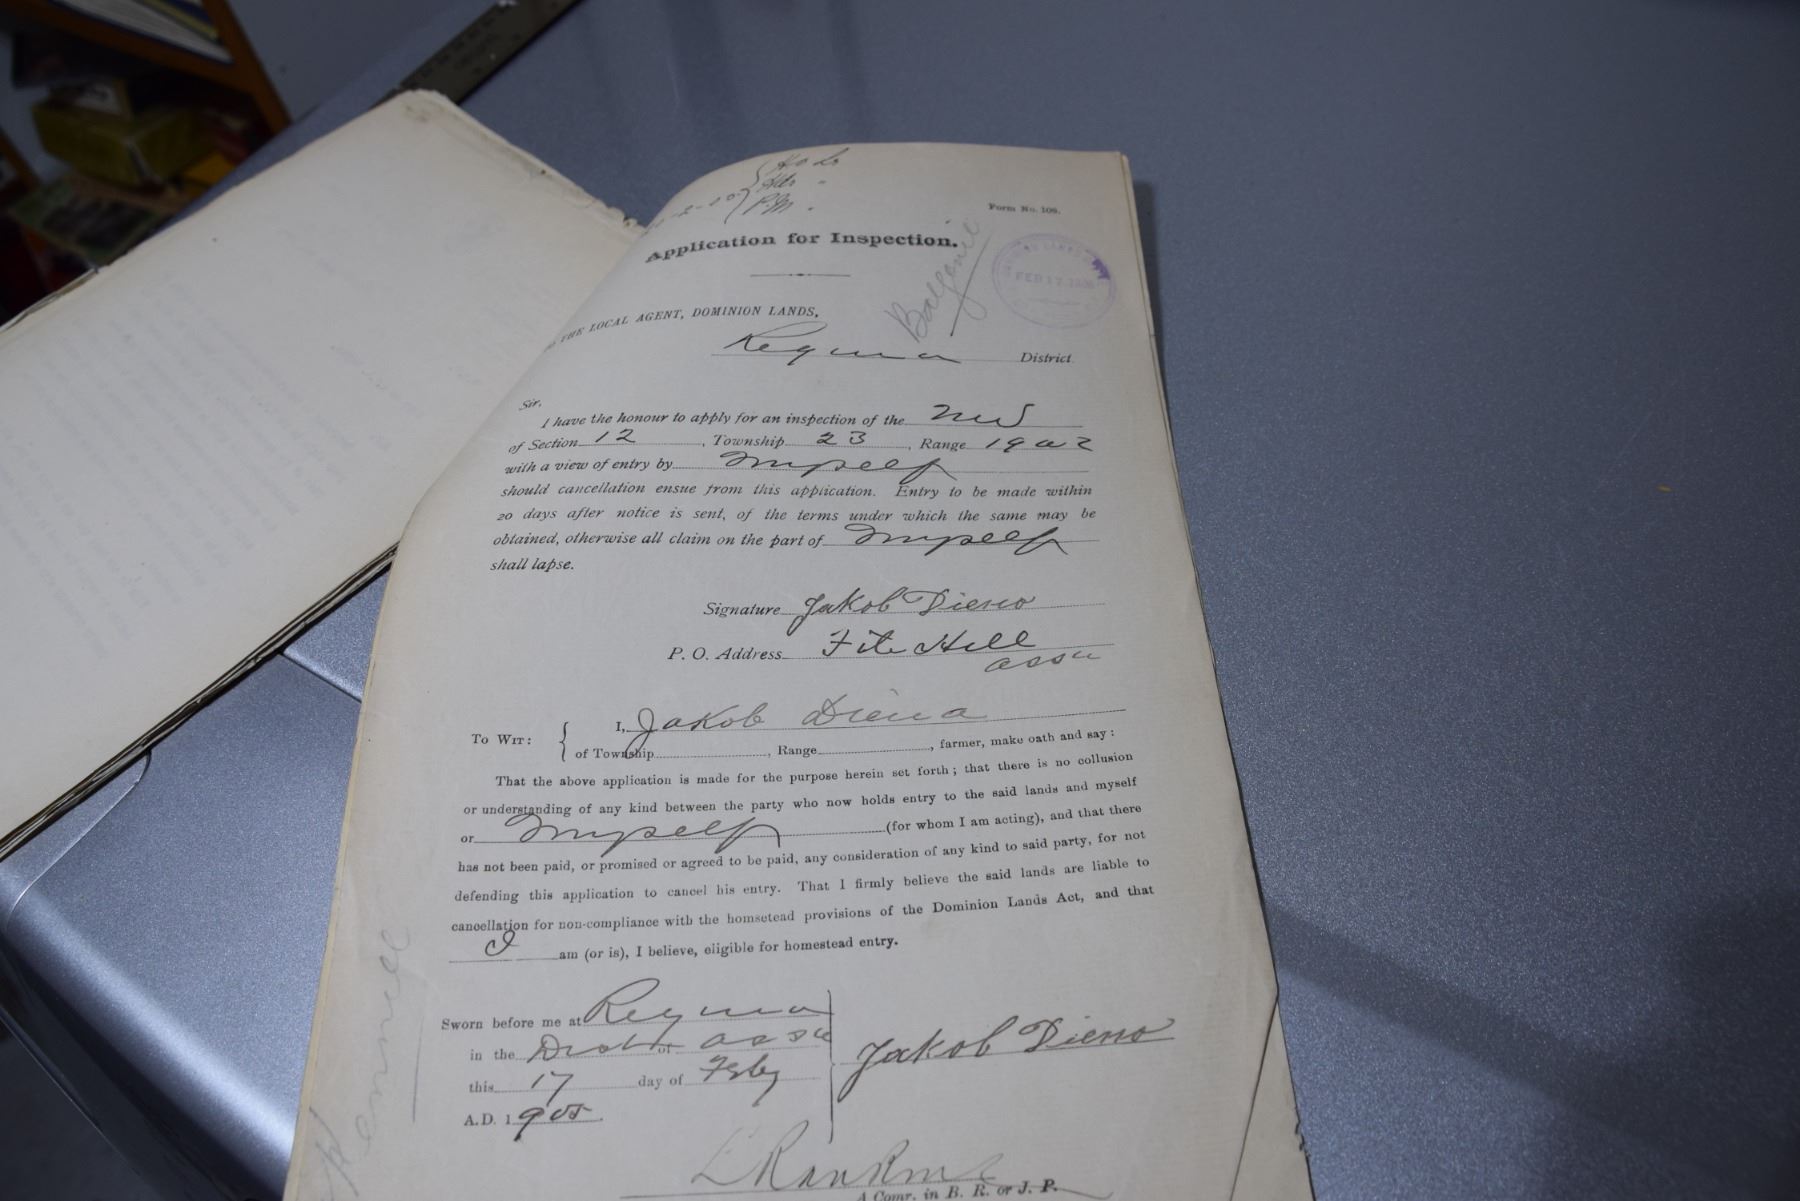 P.M.
Form No. 109.
Application for Inspection.
FEB 17 1905
Balgonie
THE LOCAL AGENT, DOMINION LANDS,
Regina District.
Sir.
I have the honour to apply for an inspection of the NW
of Section 12, Township 23, Range 19 W 2
with a view of entry by myself
should cancellation ensue from this application. Entry to be made within
20 days after notice is sent, of the terms under which the same may be
obtained, otherwise all claim on the part of myself
shall lapse.
Signature Jakob Dieno
P. O. Address Fite Hill
Assa
I, Jakob Diena
To Wit:
of Township , Range , farmer, make oath and say:
That the above application is made for the purpose herein set forth; that there is no collusion
or understanding of any kind between the party who now holds entry to the said lands and myself
or myself (for whom I am acting), and that there
has not been paid, or promised or agreed to be paid, any consideration of any kind to said party, for not
defending this application to cancel his entry. That I firmly believe the said lands are liable to
cancellation for non-compliance with the homsetead provisions of the Dominion Lands Act, and that
I am (or is), I believe, eligible for homestead entry.
Sworn before me at Regina
in the Dist of Assa
this 17 day of Feby
A.D. 1905
Jakob Dieno
A Comr. in B. R. or J. P.